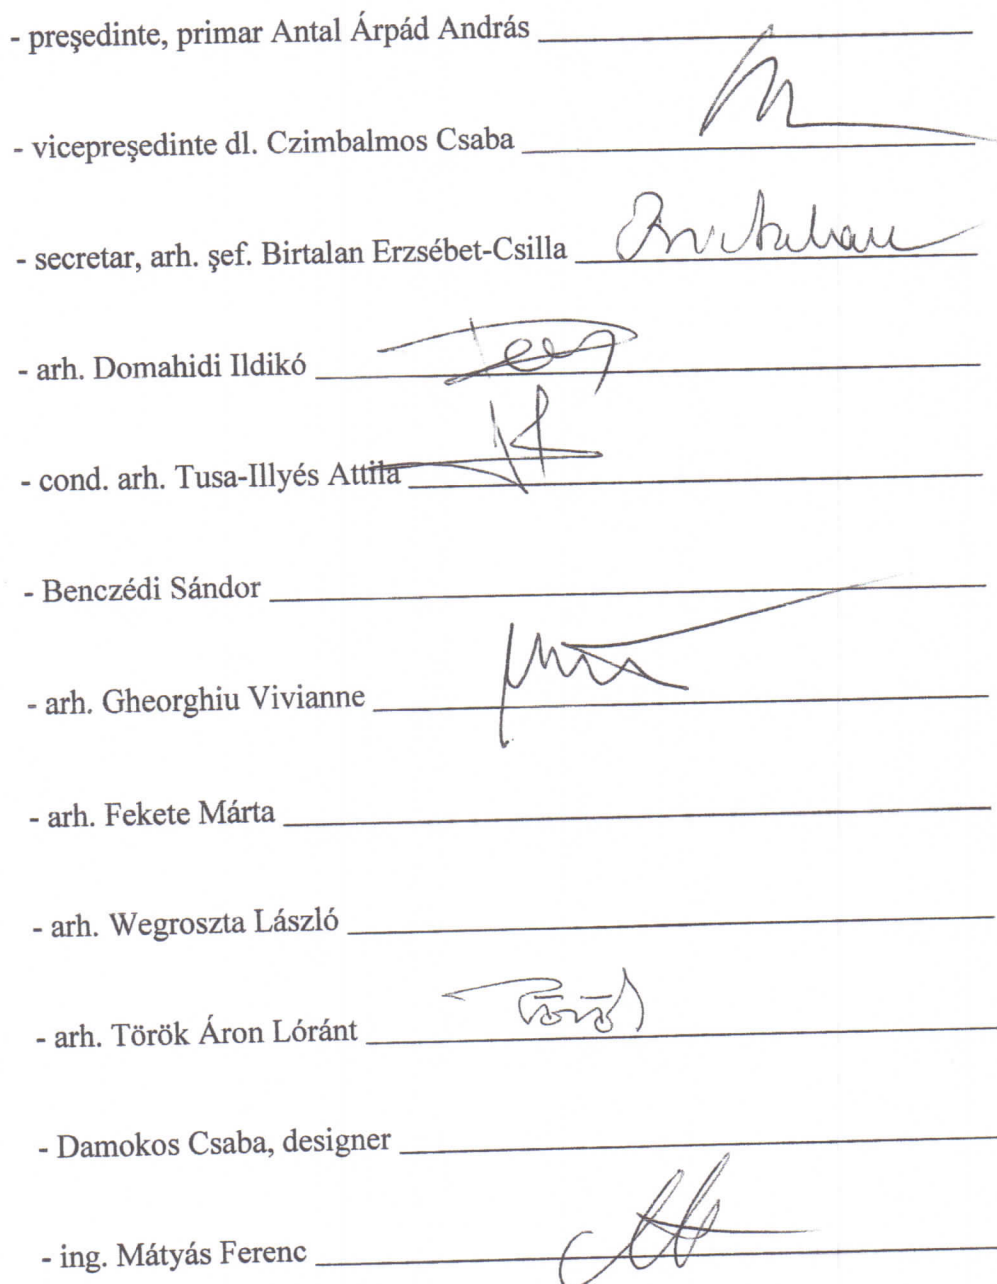 - preşedinte, primar Antal Árpád András
- vicepreşedinte dl. Czimbalmos Csaba
- secretar, arh. şef. Birtalan Erzsébet-Csilla Birtalan
- arh. Domahidi Ildikó
- cond. arh. Tusa-Illyés Attila
- Benczédi Sándor
- arh. Gheorghiu Vivianne
- arh. Fekete Márta
- arh. Wegroszta László
- arh. Török Áron Lóránt Török
- Damokos Csaba, designer
- ing. Mátyás Ferenc